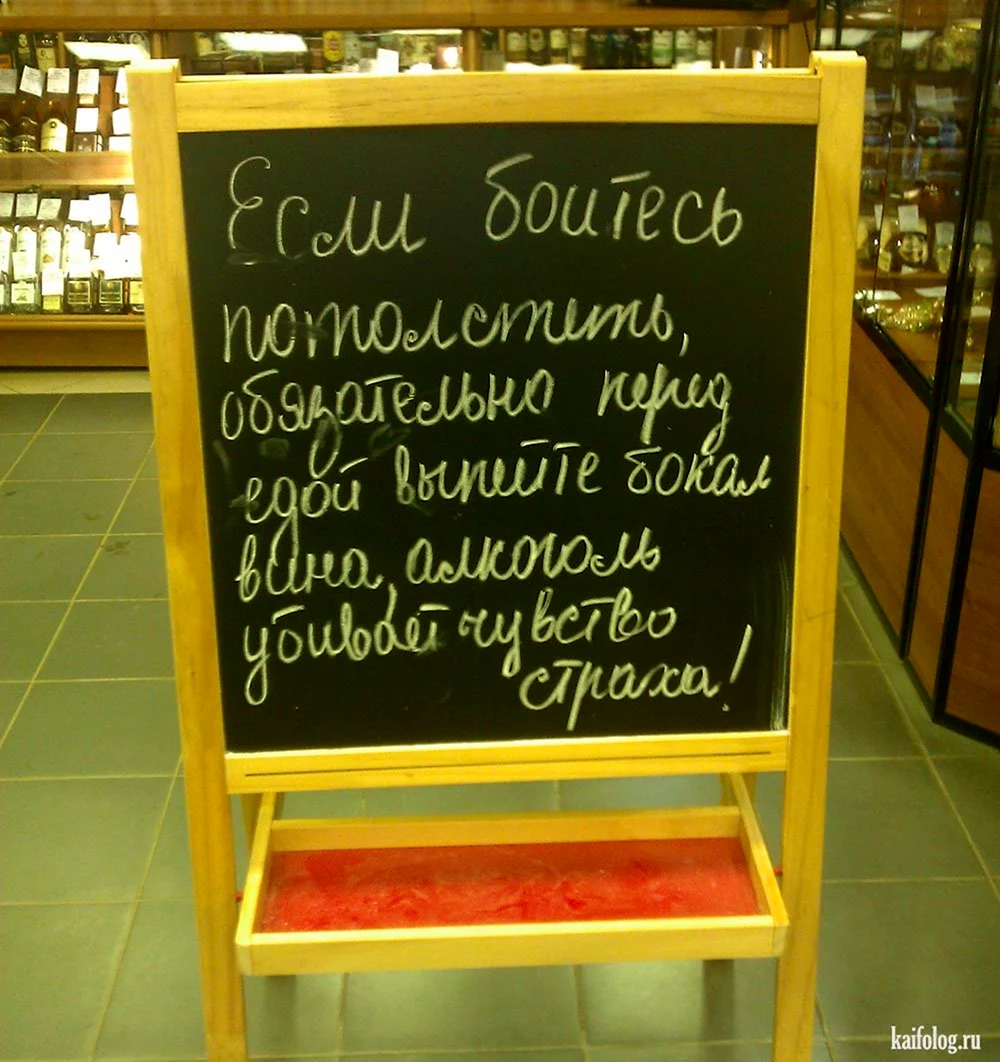 Если боитесь
потолстеть,
обязательно перед
едой выпейте бокал
вина, алкоголь
убивает чувство
страха!
kaifolog.ru